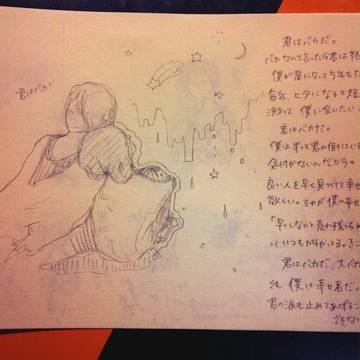 君はバカ
君はバカだ。
バカなんて言ったら君は怒
僕が星になって5年も
毎年、七夕になると短
決まって僕に会いたい
君はバカだ。
僕はずっと君の側にいる
気付かないんだから。
良い人を早く見つけて幸
欲しい。それが僕の幸せ
「早くしないと売れ残っ
っていつもだ
君はバカだ。大バカ
でも僕は幸せ者だ。
君の涙も止めてあげるこ
できない